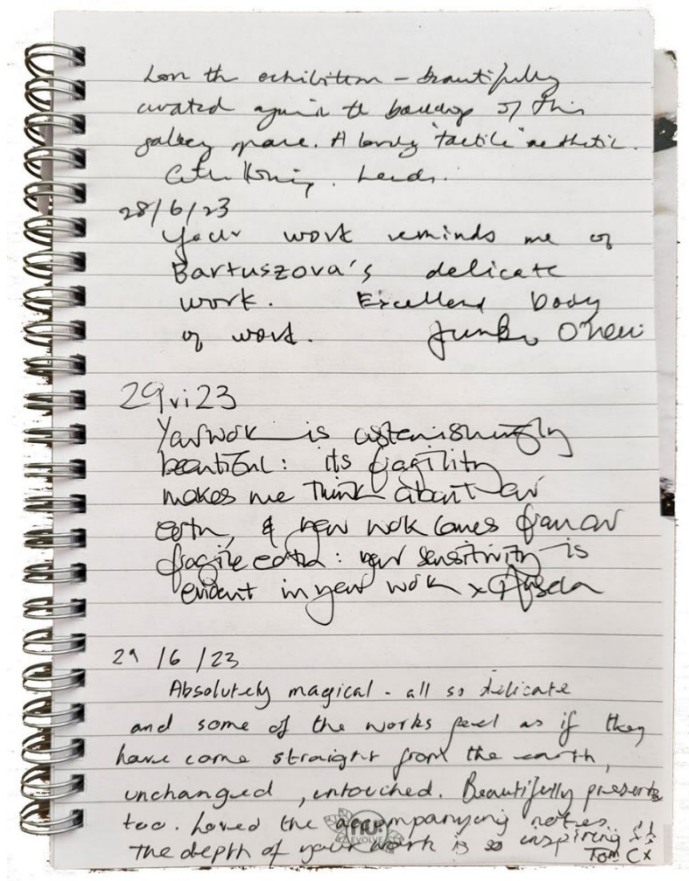 Love the exhibition – beautifully
curated against the backdrop of this
gallery space. A lovely "tactile" aesthetic.
Leeds.
28/6/23
Your work reminds me of
Bartuszova's delicate
work. Excellent body
of work. Junko O'Neill
29 vi 23
Your work is astonishingly
beautiful: its fragility
makes me think about our
earth, & your work comes from our
fragile earth: your sensitivity is
evident in your work x
29/6/23
Absolutely magical - all so delicate
and some of the works feel as if they
have come straight from the earth,
unchanged, untouched. Beautifully presented
too. Loved the accompanying notes
the depth of your work is so inspiring!!
Tom Cx
EVOLVE